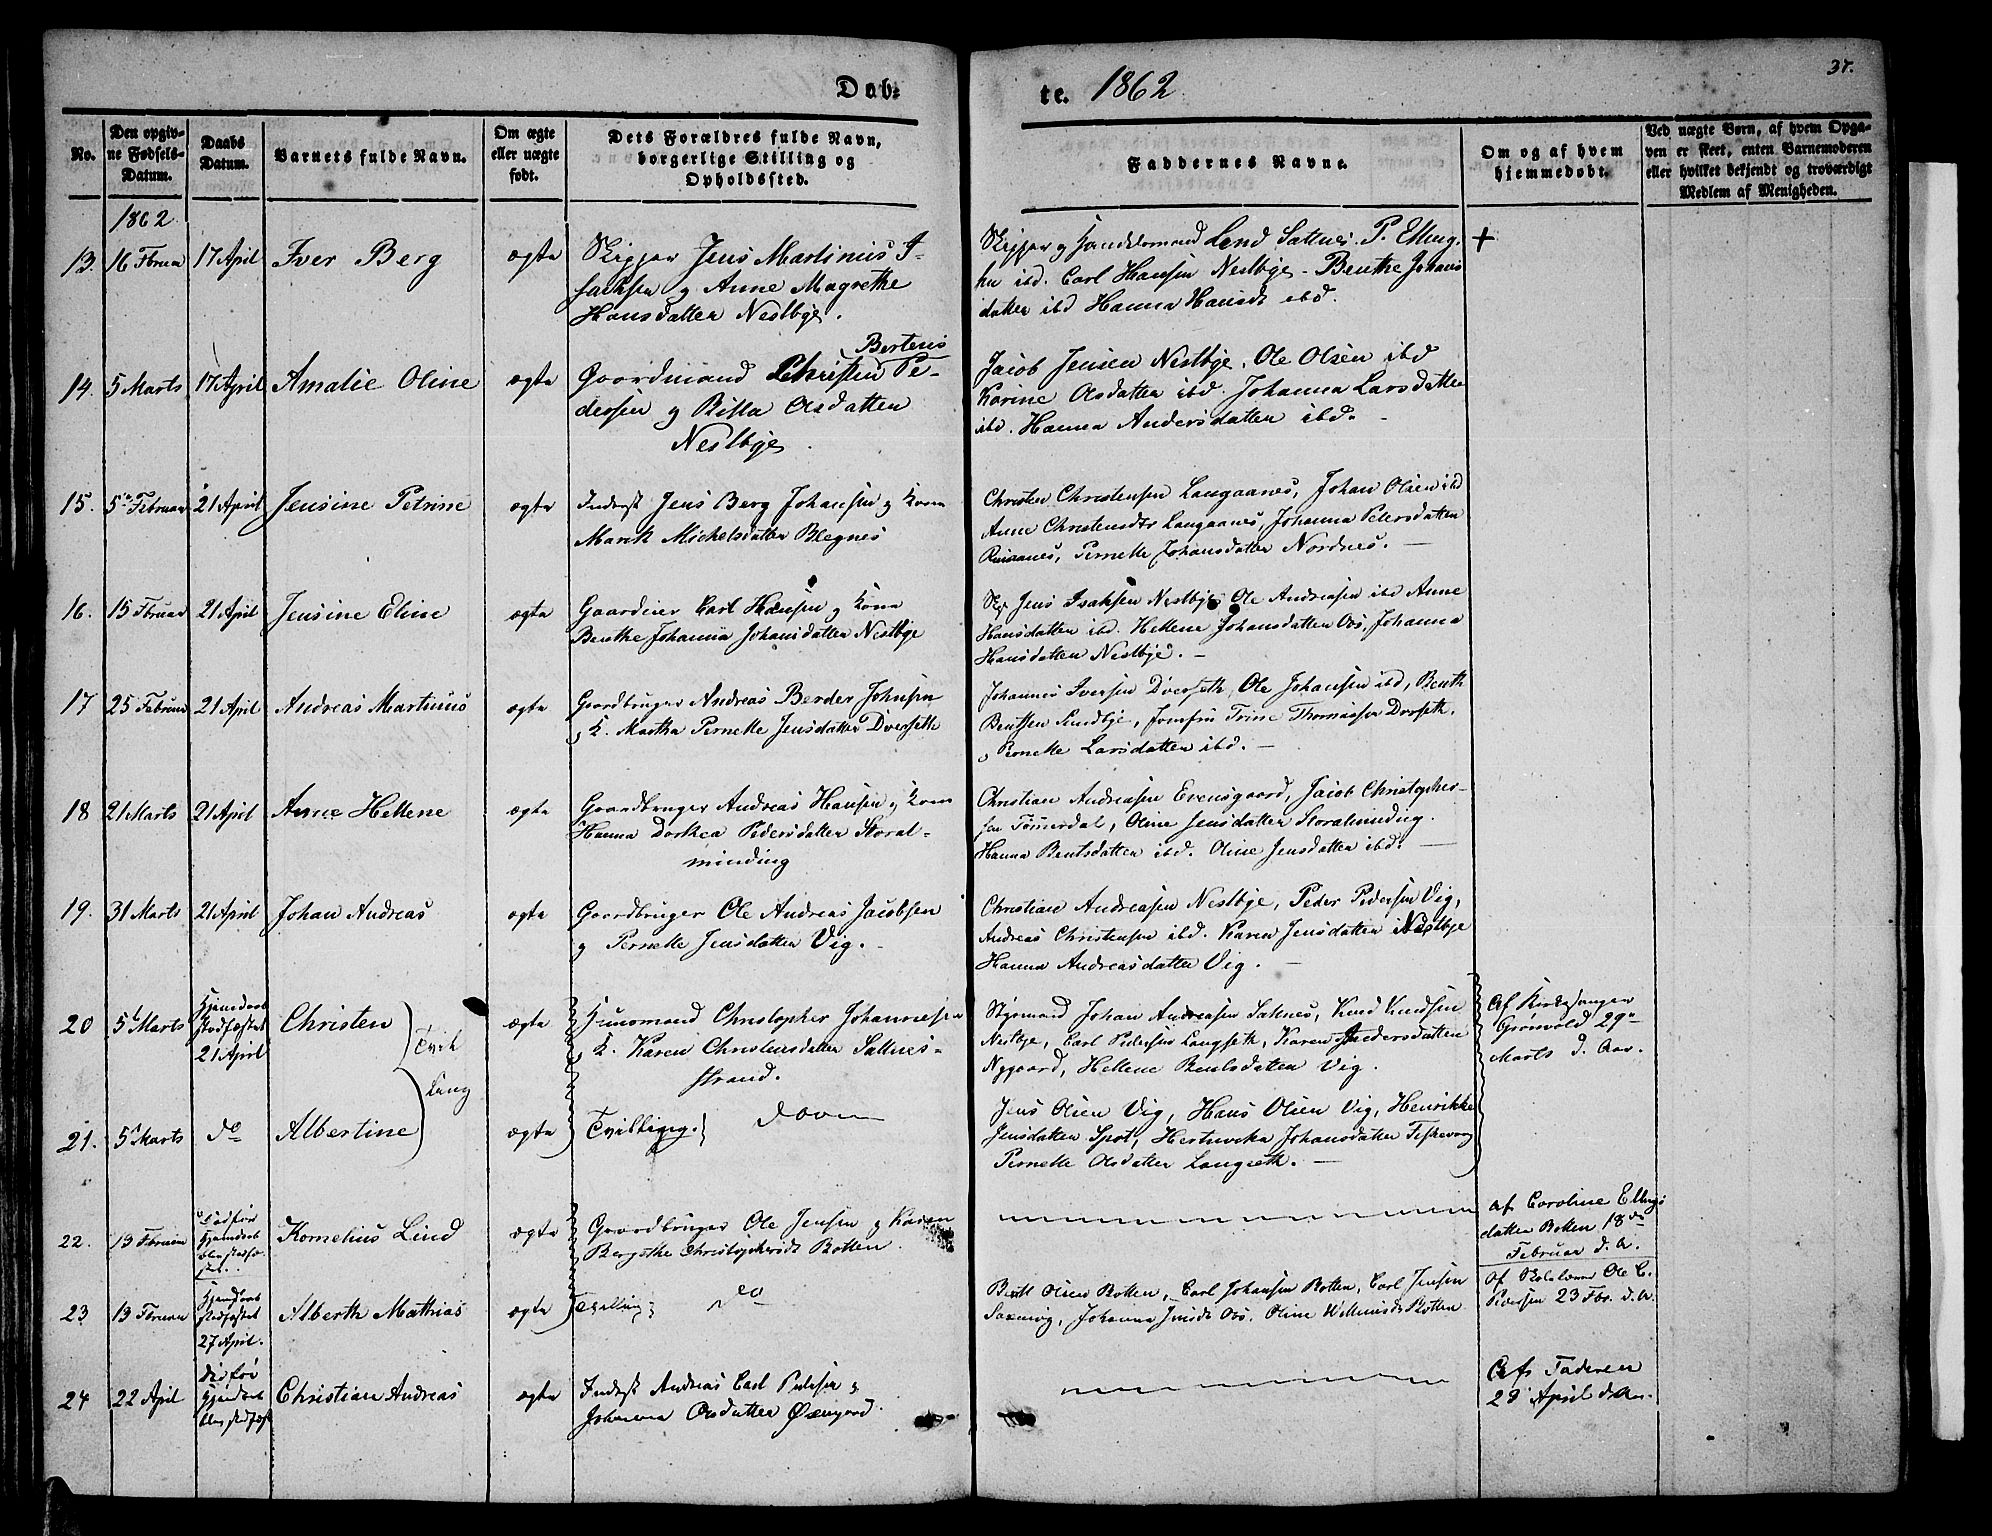 Døb=
te. 1862
37.
No.
Den opgiv=
ne Fødsels=
Datum.
Daabs
Datum.
Barnets fulde Navn.
Om ægte
eller uægte
født.
Dets Forældres fulde Navn,
borgerlige Stilling og
Opholdssted.
Faddernes Navne.
Om og af hvem
hjemmedøbt.
Ved uægte Børn, af hvem Opga=
ven er skeet, enten Barnemoderen
eller hvilket bekjendt og troværdigt
Medlem af Menigheden.
1862
13. 16 Fbruar 17 April Iver Berg ægte
Skipper Jens Martinius I-
sachsen og Anne Magrethe
Hansdatter Nestbye.
Skipper og Handelsmand Lend Saltnes. P. Elling.
ibd. Carl Hansen Nestbye - Benthe Johans
datter ibd Hanna Hansdt ibd.
+
14. 5 Marts 17 April Amalie Oline ægte
Berteus
Gaardmand Christen Pe-
dersen og Ritta Olsdatter
Nestbye.
Jacob Jensen Nestbye, Ole Olsen ibd
Karine Olsdatter ibd. Johanna Larsdatter
ibd. Hanna Andersdatter ibd. -
15. 5 Februar 21 April Jensine Petrine ægte
Inderst Jens Berg Johansen og Kone
Marit Michelsdatter Blegnes
Christen Christensen Langaanes, Johan Olsen ibd
Anne Christensdtr Langaanes, Johanna Petersdatter
Pernelle Johansdatter Nordnes. -
16. 15 Fbruar 21 April Jensine Eline ægte
Gaardeier Carl Hansen og Kone
Benthe Johanna Johansdatter Nestbye
Skp Jens Isaksen Nestbye Ole Andreasen ibd Anne
Hansdatter ibd. Hellene Johansdatter Oos, Johanna
Hansdatter Nestbye. -
17 25 Februar 21 April Andreas Martinus ægte
Gaardbruger Andreas Berder Johnsen
og K. Martha Pernelle Jensdatter Dverseth
Johannes Iversen Dverseth, Ole Johansen ibd, Benth
Bentsen Sundbye, Jomfru Trine Thomassen Dverseth,
og Pernelle Larsdatter ibd. -
18 21 Marts 21 April Anne Hellene ægte
Gaardbruger Andreas Hansen og Kone
Hanna Dorthea Pedersdatter Storal-
minding
Christian Andreasen Evensgaard, Jacob Christopher-
sen Tømerdal, Oline Jensdatter Storalminding.
Hanna Bentsdatter ibd. Oline Jensdatter ibd. -
19. 31 Marts 21 April Johan Andreas ægte
Gaardbruger Ole Andreas Jacobsen
og Pernelle Jensdatter Vig. -
Christian Andreasen Nestbye, Peder Pedersen Vig,
Andreas Christensen ibd. Karen Jensdatter Nestbye
Hanna Andreasdatter Vig. -
20 5 Marts Hjemdøbt
Stadfæstet
21 April
Christen Tvil
ling ægte
Huusmand Christopher Johannesen
og K. Karen Christensdatter Saltnes-
strand.
Styrmand Johan Andreasen Saltnes, Knud Knudsen
Nestbye, Carl Pedersen Langseth, Karen Andersdatter
Nygaard, Hellene Bentsdatter Vig.
Af Kirkesanger
Grønvold 29
Marts d. Aar.
21. 5 Marts do Albertine ægte
Tvillinger. Do
Jens Olsen Vig, Hans Olsen Vig, Henrikke
Jensdatter Spot, Johansdatter Fiskevaag
Pernelle Olsdatter Langseth. -
22. 13 Fbruar
Død før
Hjemdøbt
blev stadfæ-
stet.
Kornelius Lind ægte
Gaardbruger Ole Jensen og Karen
Bergithe Christophersdt Botten
af Caroline Ellings
datter Botten 18de
Februar d. A.
23 13 Fbruar Hjemdøbt
stadfæstet
27 April.
Alberth Mathias ægte
Tvilling do
Olsen Botten, Carl Johansen Botten, Carl Jensen
Saxevig, Johanna Jensdt Oos. Oline Willumsdt Botten
Af Skolelærer Ole C.
Pedersen 23 Fbr. d. A.
24 22 April Død før
Hjemdøbt
blev stadfæst
Christian Andreas ægte
Inderst Andreas Carl Pedersen og
Johanna Olsdatter Øxengaard.
Af Faderen
23 April d. A.